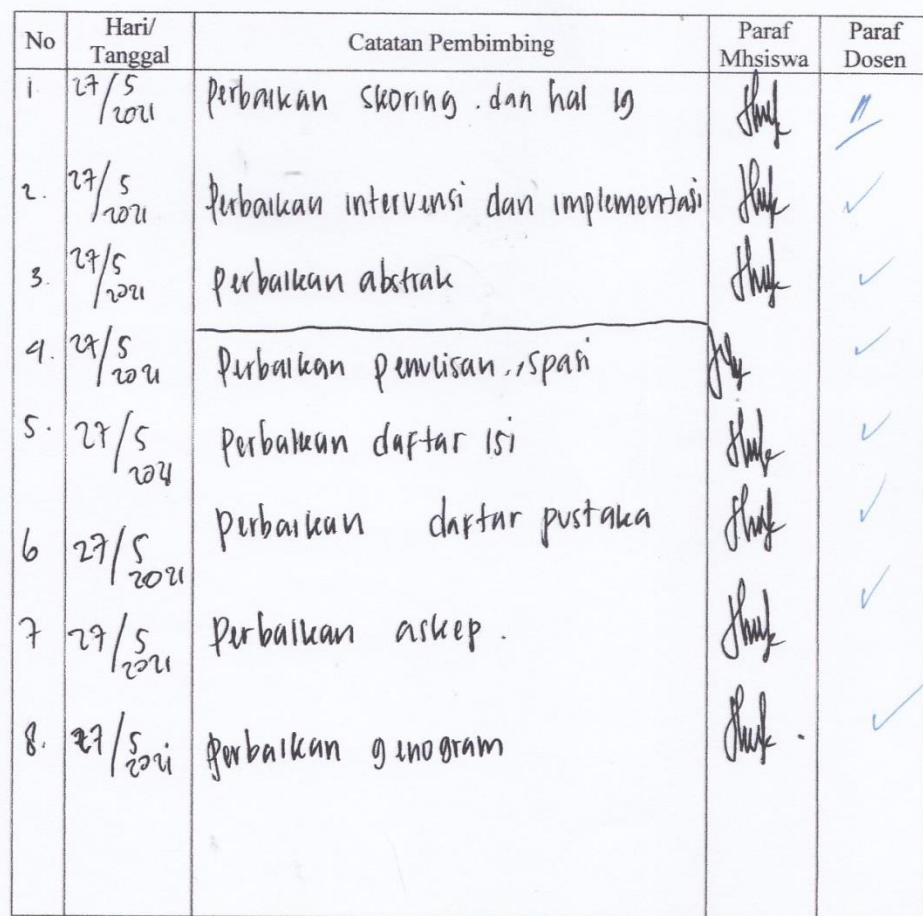 No Hari/ Tanggal Catatan Pembimbing Paraf Mhsiswa Paraf Dosen
1 27/5 2021 Perbaikan skoring . dan hal 19
2. 27/5 2021 Perbaikan intervensi dan implementasi
3. 27/5 2021 Perbaikan abstrak
4. 27/5 2021 Perbaikan penulisan ,, spasi
5. 27/5 2021 Perbaikan daftar isi
6 27/5 2021 Perbaikan daftar pustaka
7 27/5 2021 Perbaikan askep .
8. 27/5 2021 Perbaikan genogram